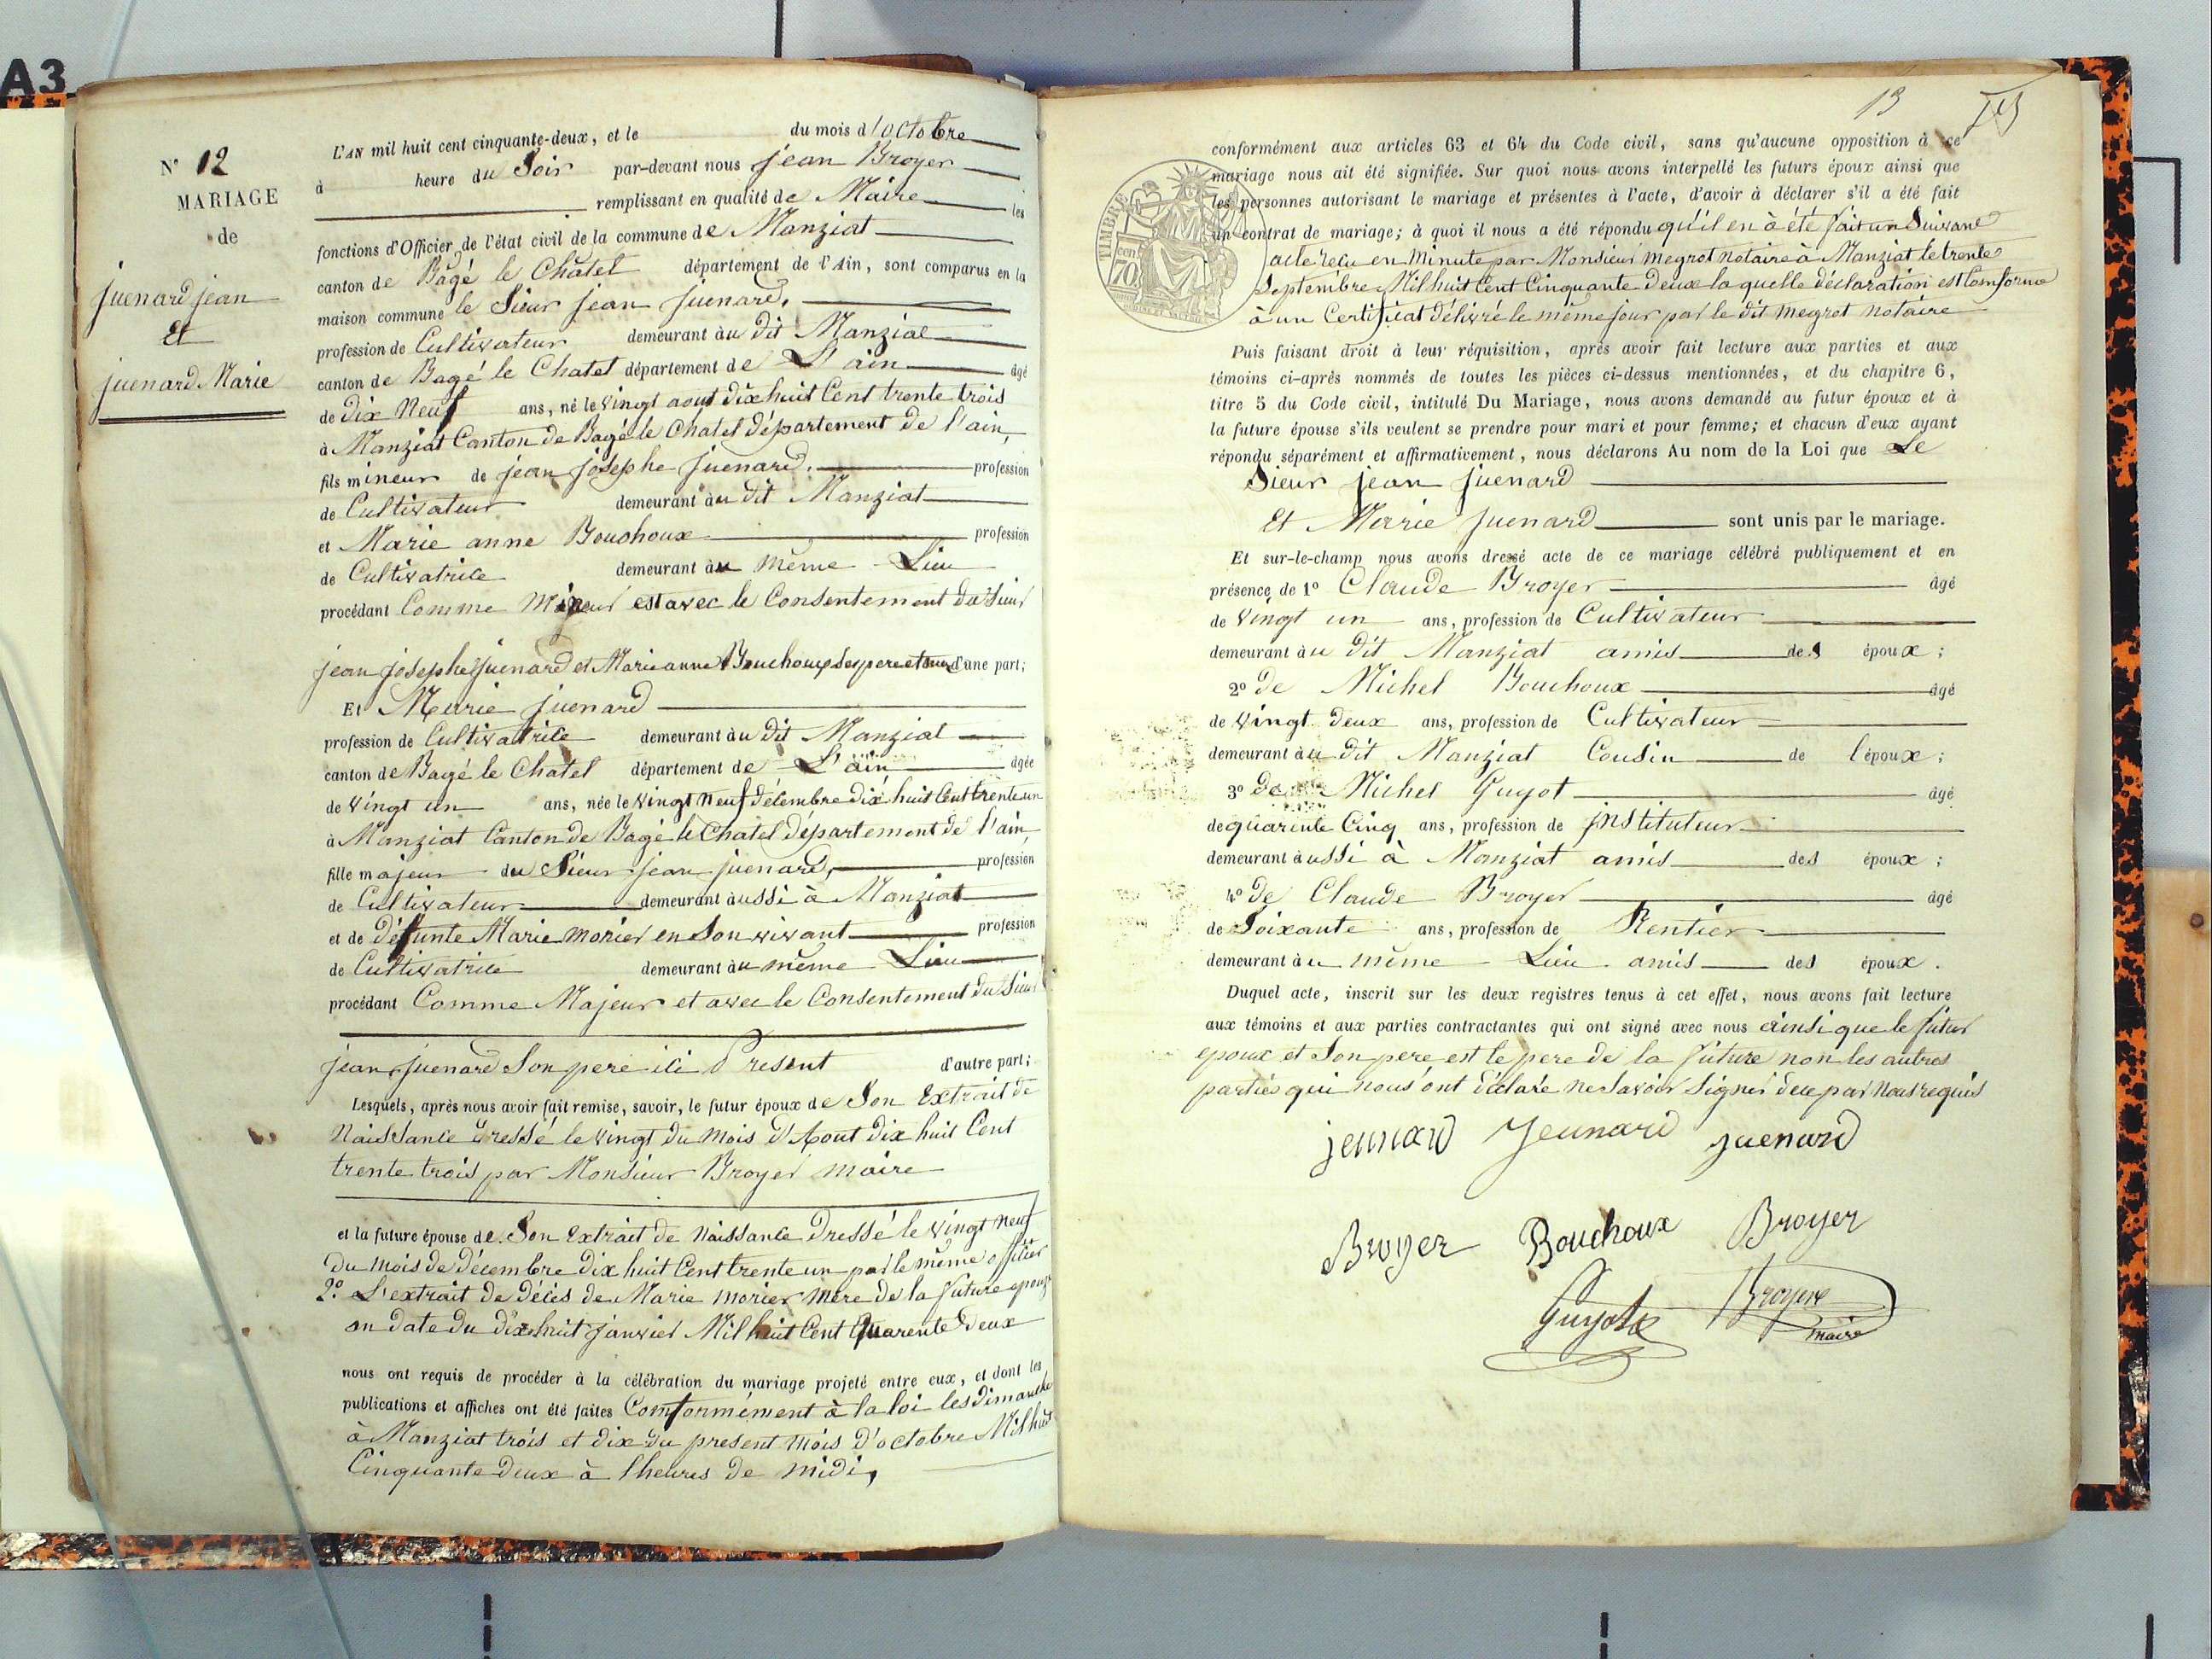 A3
N° 12
MARIAGE
de
juenard jean
Et
juenard Marie
L'AN mil huit cent cinquante-deux, et le du mois d'octobre
à heure du Soir par-devant nous jean Broyer
remplissant en qualité de Maire les
fonctions d'Officier de l'état civil de la commune de Manziat
canton de Bagé le Châtel département de l'Ain, sont comparus en la
maison commune le Sieur jean juenard,
profession de Cultivateur demeurant àu dit Manziat
canton de Bagé le Chatel département de L'ain âgé
de dix Neuf ans, né le vingt aout dix huit Cent trente trois
à Manziat Canton de Bagé le Chatel département de l'ain,
fils mineur de jean josephe juenard. profession
de Cultivateur demeurant àu dit Manziat
et Marie anne Bouchoux profession
de Cultivatrice demeurant àu même Lieu
procédant Comme Mineur est avec le Consentement du Sieur
jean josephe juenard et Marie anne Bouchoux Ses pere et mere d'une part;
Et Marie juenard
profession de Cultivatrice demeurant àu dit Manziat
canton de Bagé le Chatel département de L'ain âgée
de vingt un ans, née le vingt Neuf décembre dix huit Cent trente un
à Manziat Canton de Bagé le Chatel département de l'ain,
fille majeur du Sieur jean juenard, profession
de Cultivateur demeurant àussi à Manziat
et de défunte Marie morier en Son vivant profession
de Cultivatrice demeurant àu même Lieu
procédant Comme Majeur et avec le Consentement du Sieur
jean juenard Son pere ici Present d'autre part;
Lesquels, après nous avoir fait remise, savoir, le futur époux de Son Extrait de
Naissance dressé le vingt du Mois d'Aout dix huit Cent
trente trois par Monsieur Broyer maire
et la future épouse de Son Extrait de Naissance dressé le vingt neuf
du mois de décembre dix huit Cent trente un par le même officier
2° L'extrait de décès de Marie morier mère de la future epouse
en date du dix huit janvier Mil huit Cent Quarente Deux
nous ont requis de procéder à la célébration du mariage projeté entre eux, et dont les
publications et affiches ont été faites Comformément à la loi les dimanche
à Manziat trois et dix du present mois d'octobre Mil huit
Cinquante deux à l heures de midi,
13
conformément aux articles 63 et 64 du Code civil, sans qu'aucune opposition à ce
mariage nous ait été signifiée. Sur quoi nous avons interpellé les futurs époux ainsi que
les personnes autorisant le mariage et présentes à l'acte, d'avoir à déclarer s'il a été fait
un contrat de mariage; à quoi il nous a été répondu qu'il en à été fait un Suivant
acte reçu en Minute par Monsieur megrot Notaire à Manziat le trente
Septembre Mil huit Cent Cinquante Deux la quelle déclaration est Comforme
à un Certificat délivré le même jour par le dit megrot notaire
TIMBRE
70 cen
Puis faisant droit à leur réquisition, après avoir fait lecture aux parties et aux
témoins ci-après nommés de toutes les pièces ci-dessus mentionnées, et du chapitre 6,
titre 5 du Code civil, intitulé Du Mariage, nous avons demandé au futur époux et à
la future épouse s'ils veulent se prendre pour mari et pour femme; et chacun d'eux ayant
répondu séparément et affirmativement, nous déclarons Au nom de la Loi que Le
Sieur jean juenard
Et Marie juenard sont unis par le mariage.
Et sur-le-champ nous avons dressé acte de ce mariage célébré publiquement et en
présence de 1° Claude Broyer âgé
de vingt un ans, profession de Cultivateur
demeurant àu dit Manziat amis des époux;
2° de Michel Bouchoux âgé
de vingt deux ans, profession de Cultivateur
demeurant àu dit Manziat Cousin de l'époux;
3° de Michel Guyot âgé
de quarente Cinq ans, profession de jnstituteur
demeurant àussi à Manziat amis des époux;
4° de Claude Broyer âgé
de Soixante ans, profession de Rentier
demeurant àu même Lieu amis des époux.
Duquel acte, inscrit sur les deux registres tenus à cet effet, nous avons fait lecture
aux témoins et aux parties contractantes qui ont signé avec nous ainsi que le futur
epoux et Son pere est le pere de la future non les autres
parties qui nous ont déclaré ne Savoir Signer de ce par Nous requis
jeunard Jeunard juenard
Broyer Bouchoux Broyer
Guyot Broyer
maire